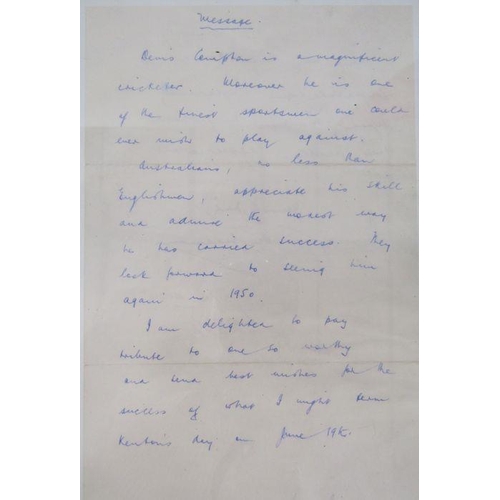 Message.
Denis Compton is a magnificent
cricketer. Moreover he is one
of the finest sportsmen one could
ever wish to play against.
Australians, no less than
Englishmen, appreciate his skill
and admire the modest way
he has carried success. They
look forward to seeing him
again in 1950.
I am delighted to pay
tribute to one so worthy
and send best wishes for the
success of what I might term
day on June